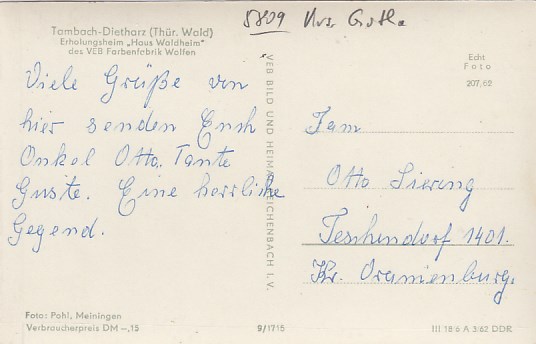 5809 Krs. Gotha
Tambach-Dietharz (Thür. Wald)
Erholungsheim „Haus Waldheim"
des VEB Farbenfabrik Wolfen
Viele Grüße von
hier senden Euch
Onkel Otto, Tante
Guste. Eine herrliche
Gegend.
Foto: Pohl, Meiningen
Verbraucherpreis DM –,15
VEB BILD UND HEIMAT REICHENBACH I. V.
9/1715
Echt
Foto
207/62
Fam
Otto Siering
Teschendorf 1401.
Kr. Oranienburg.
III 18 6 A 3/62 DDR